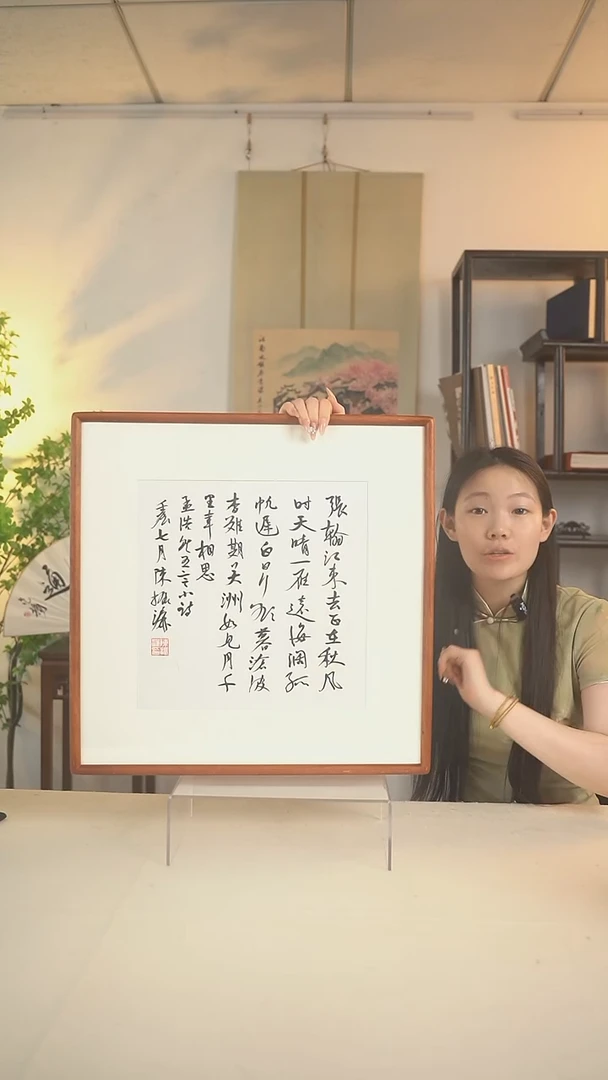 張翰江東去正在秋風
时天晴一雁遠海阔孤
帆遲白日行欲暮滄波
杳難期吴洲如見月千
里幸相思
孟浩然五言小詩
七月陳振濂